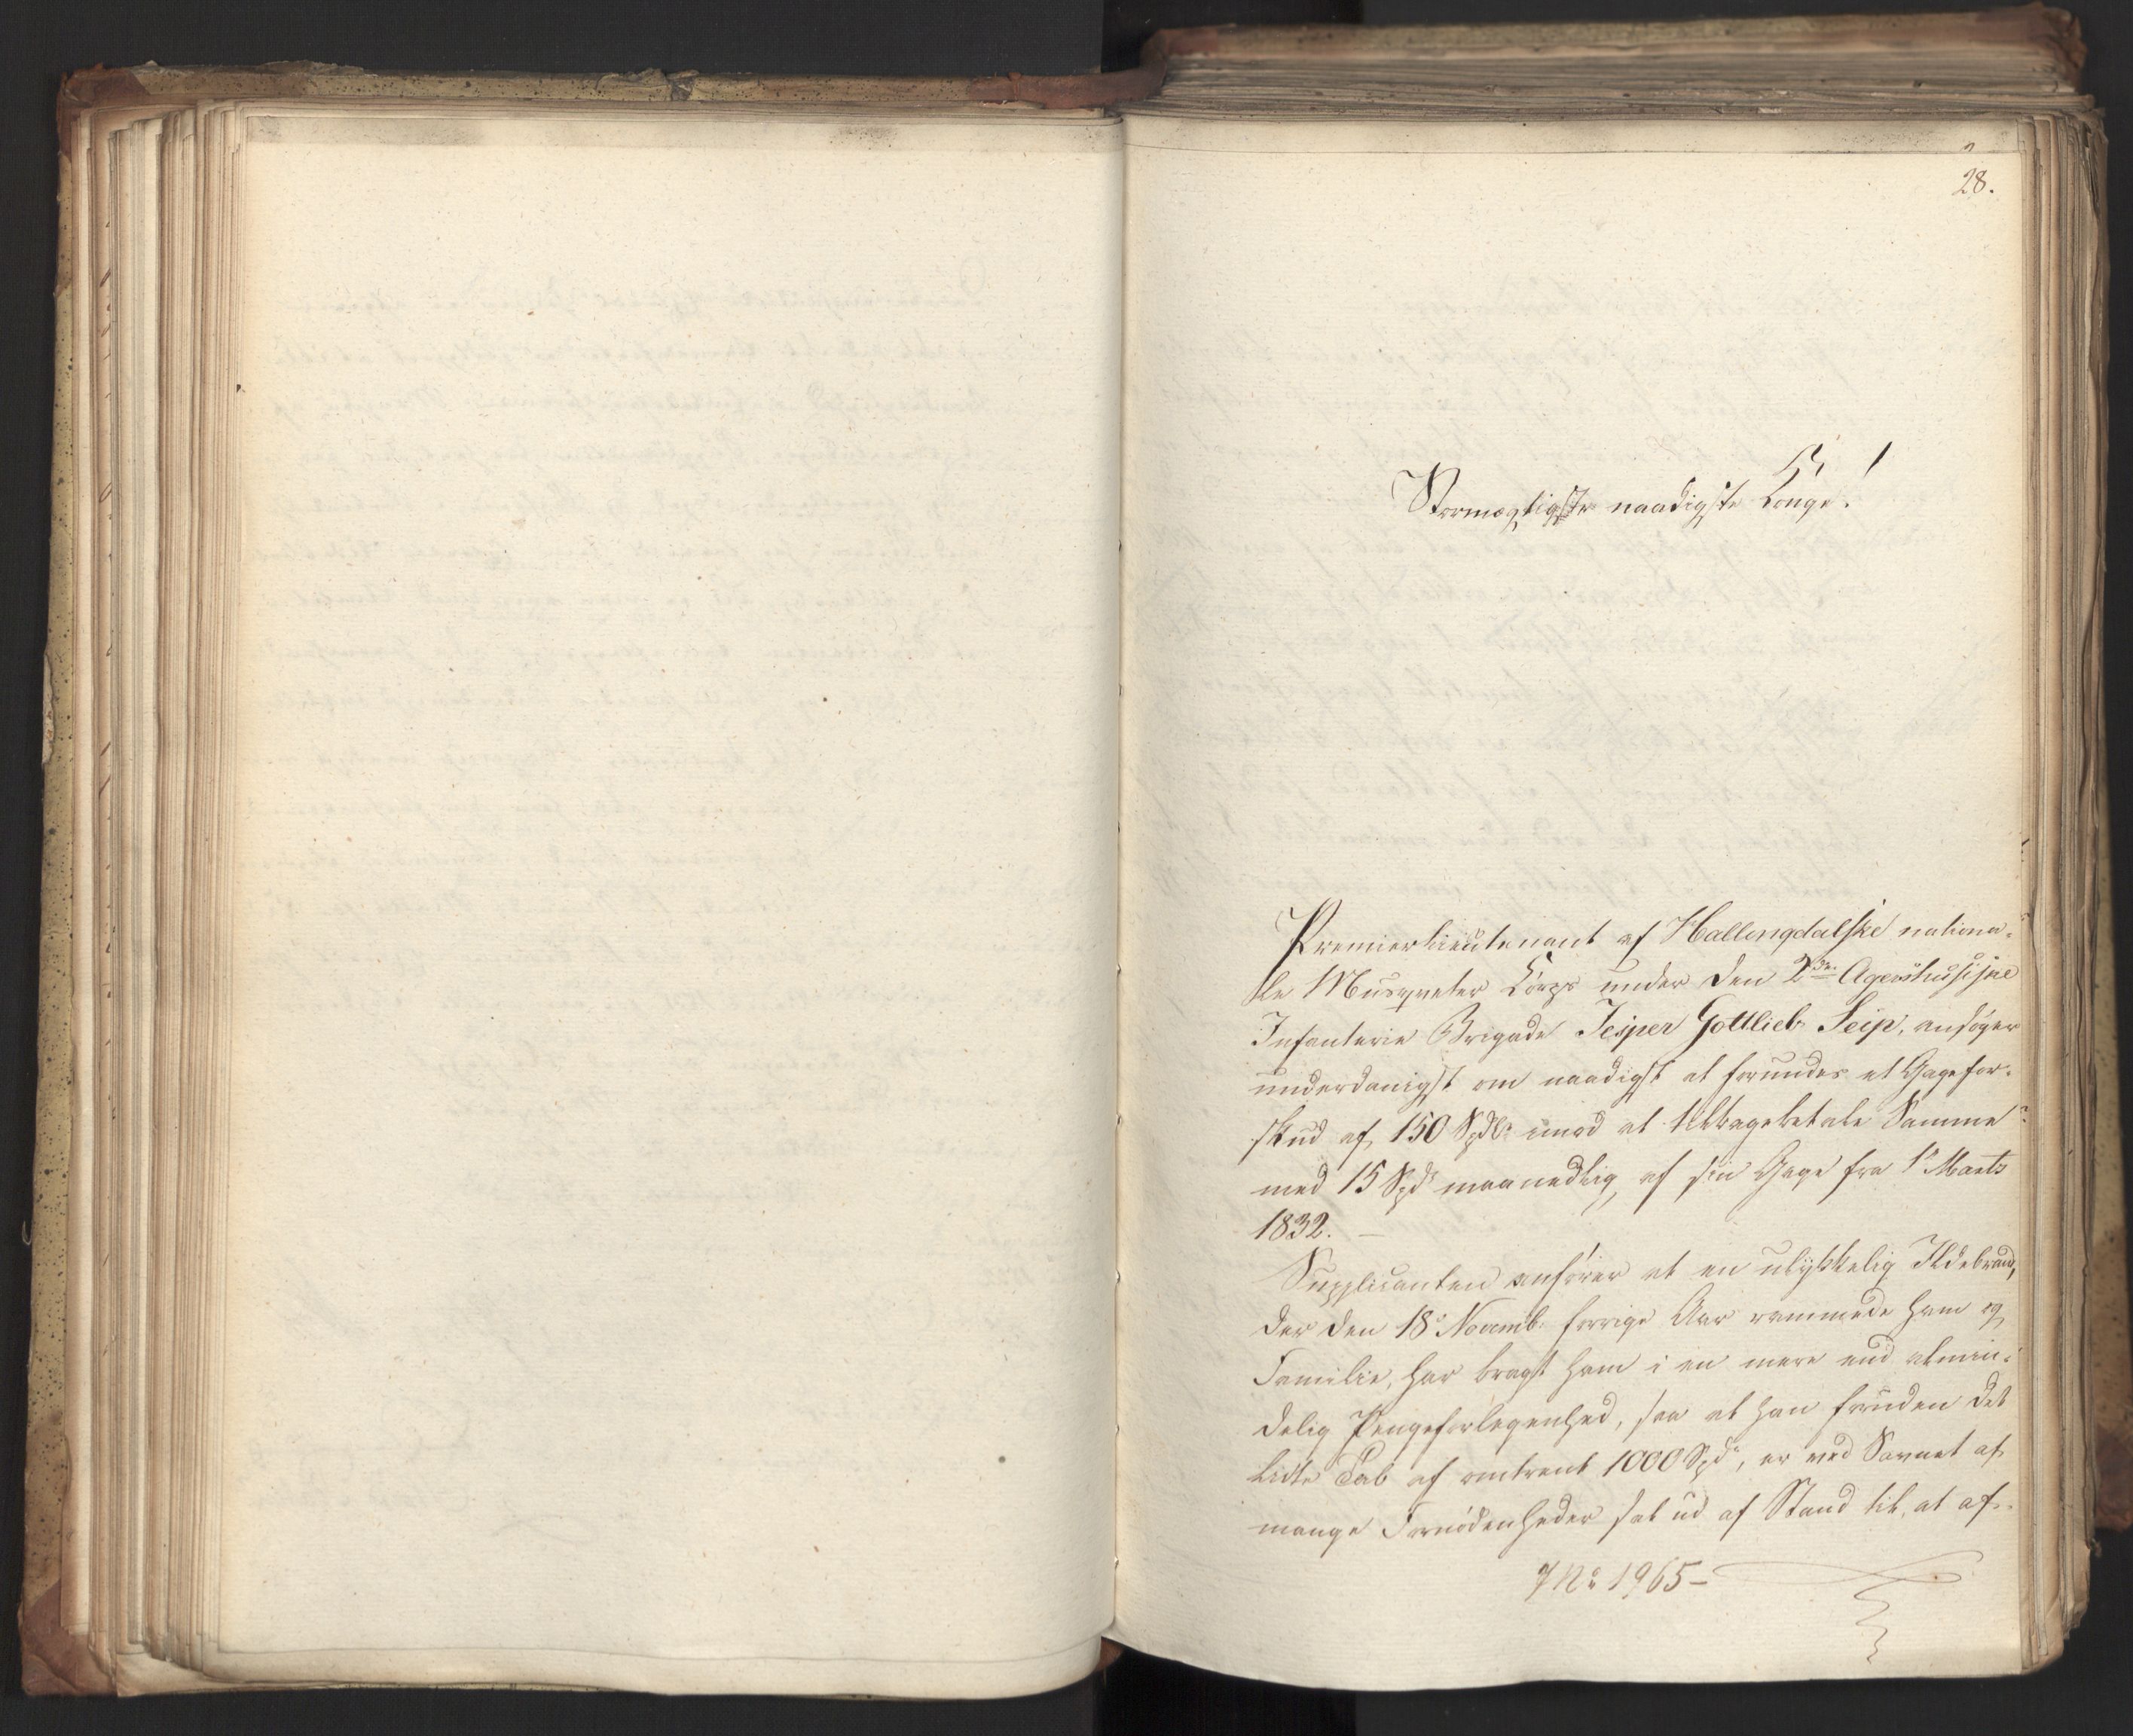 28.
Stormægtigste naadigste Konge!
Premierlieutenant af Hallingdalske nationa-
le Musqueter Corps under den 2den Agershusiske
Infanterie Brigade Jesper Gottlieb Seip, ansøger
underdanigst om naadigst at forundes et Gagefor-
skud af 150 Spdlr imod at tilbagebetale Samme
med 15 Spdr maanedlig af sin Gage fra 1te Marts
1832. —
Supplicanten anfører at en ulykkelig Ildebrand,
der den 18de Novemb: forrige Aar rammede ham og
Familie, har bragt ham i en mere end almin-
delig Pengeforlegenhed, saa at han foruden det
lidte Tab af omtrent 1000 Spdr, er ved Savnet af
mange Fornødenheder sat ud af Stand til, at af-
No 1965 —